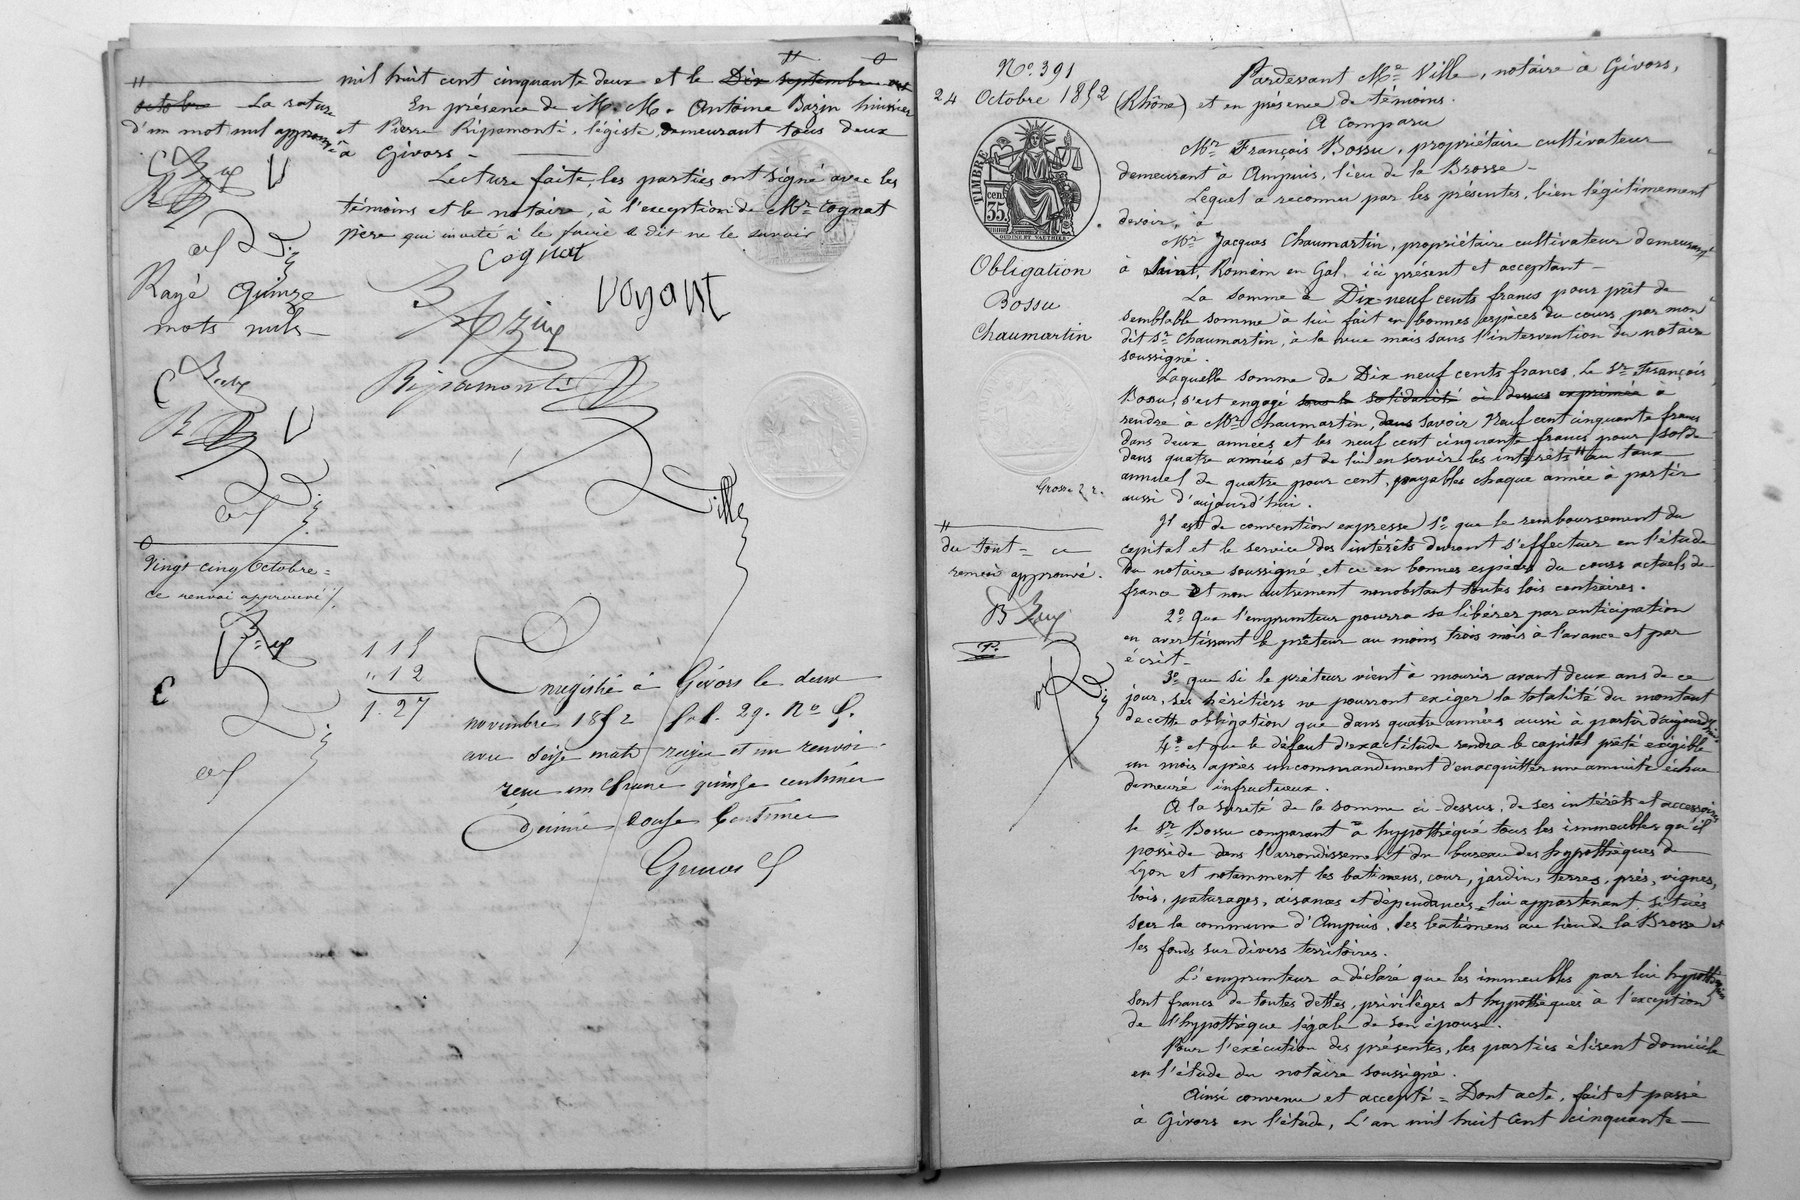 mil huit cent cinquante deux et le Dix septembre
octobre La rature
d'un mot nul approuvé
En présence de M.M. Antoine Bazin huissier
et Pierre Ripamonti, légiste, demeurant tous deux
à Givors.
Lecture faite, les parties ont signé avec les
témoins et le notaire, à l'exception de Mr Cognat
père qui invité à le faire a dit ne le savoir
Cognat
voyant
Bazin
Ripamonti
Ville
Rayé quinze
mots nuls
vingt cinq Octobre =
ce renvoi approuvé
1 15
" 12
1.27
Enregistré à Givors le deux
novembre 1852 fol. 29. No 5.
avec seize mots rayés et un renvoi.
reçu un franc quinze centimes
décime douze centimes
No. 391
24 Octobre 1852
TIMBRE
35
cen.
OUDINÉ ET VAUTHIER
Obligation
Bossu
Chaumartin
Grosse
du tout = ce
renvoi approuvé.
Pardevant Me Ville, notaire à Givors,
(Rhône) et en présence de témoins.
A comparu
Mr François Bossu, propriétaire cultivateur
demeurant à Ampuis, lieu de la Brosse
Lequel a reconnu par les présentes, bien légitimement
devoir, à
Mr Jacques Chaumartin, propriétaire cultivateur demeurant
à Saint, Romain en Gal, ici présent et acceptant
La somme de Dix neuf cents francs pour prêt de
semblable somme à lui fait en bonnes espèces du cours, par mon
dit Sr Chaumartin, à la vue mais sans l'intervention du notaire
soussigné.
Laquelle somme de Dix neuf cents francs, le Sr François
Bossu, s'est engagé sous la solidarité ci dessus exprimée à
rendre à Mr Chaumartin, dans savoir Neuf cent cinquante francs
dans deux années, et les neuf cent cinquante francs pour solde
dans quatre années, et de lui en servir les intérêts " au taux
annuel de quatre pour cent, payables chaque année à partir
aussi d'aujourd'hui.
Il est de convention expresse 1o que le remboursement du
capital et le service des intérêts devront s'effectuer en l'étude
du notaire soussigné, et ce en bonnes espèces du cours actuel de
france et non autrement nonobstant toutes lois contraires.
2o Que l'emprunteur pourra se libérer par anticipation
en avertissant le prêteur au moins trois mois à l'avance et par
écrit
3o que si le prêteur vient à mourir avant deux ans de ce
jour, ses héritiers ne pourront exiger la totalité du montant
de cette obligation que dans quatre années aussi à partir d'aujourd'hui
4o et que le défaut d'exactitude rendra le capital prêté exigible
un mois après un commandement d'en acquitter une annuité échue
demeuré infructueux.
A la sureté de la somme ci-dessus, de ses intérêts et accessoires
le Sr Bossu comparant a hypothéqué tous les immeubles qu'il
possède dans l'arrondissement du bureau des hypothèques de
Lyon et notamment les batimens, cour, jardin, terres, prés, vignes,
bois, paturages, aisances et dépendances lui appartenant, situés
sur la commune d'Ampuis, les batimens au lieu de la Brosse et
les fonds sur divers territoires.
L'emprunteur a déclaré que les immeubles par lui hypothéqués
sont francs de toutes dettes, privilèges et hypothèques à l'exception
de l'hypothèque légale de son épouse.
Pour l'exécution des présentes, les parties élisent domicile
en l'étude du notaire soussigné.
Ainsi convenu et accepté = Dont acte, fait et passé
à Givors en l'étude, L'an mil huit cent cinquante